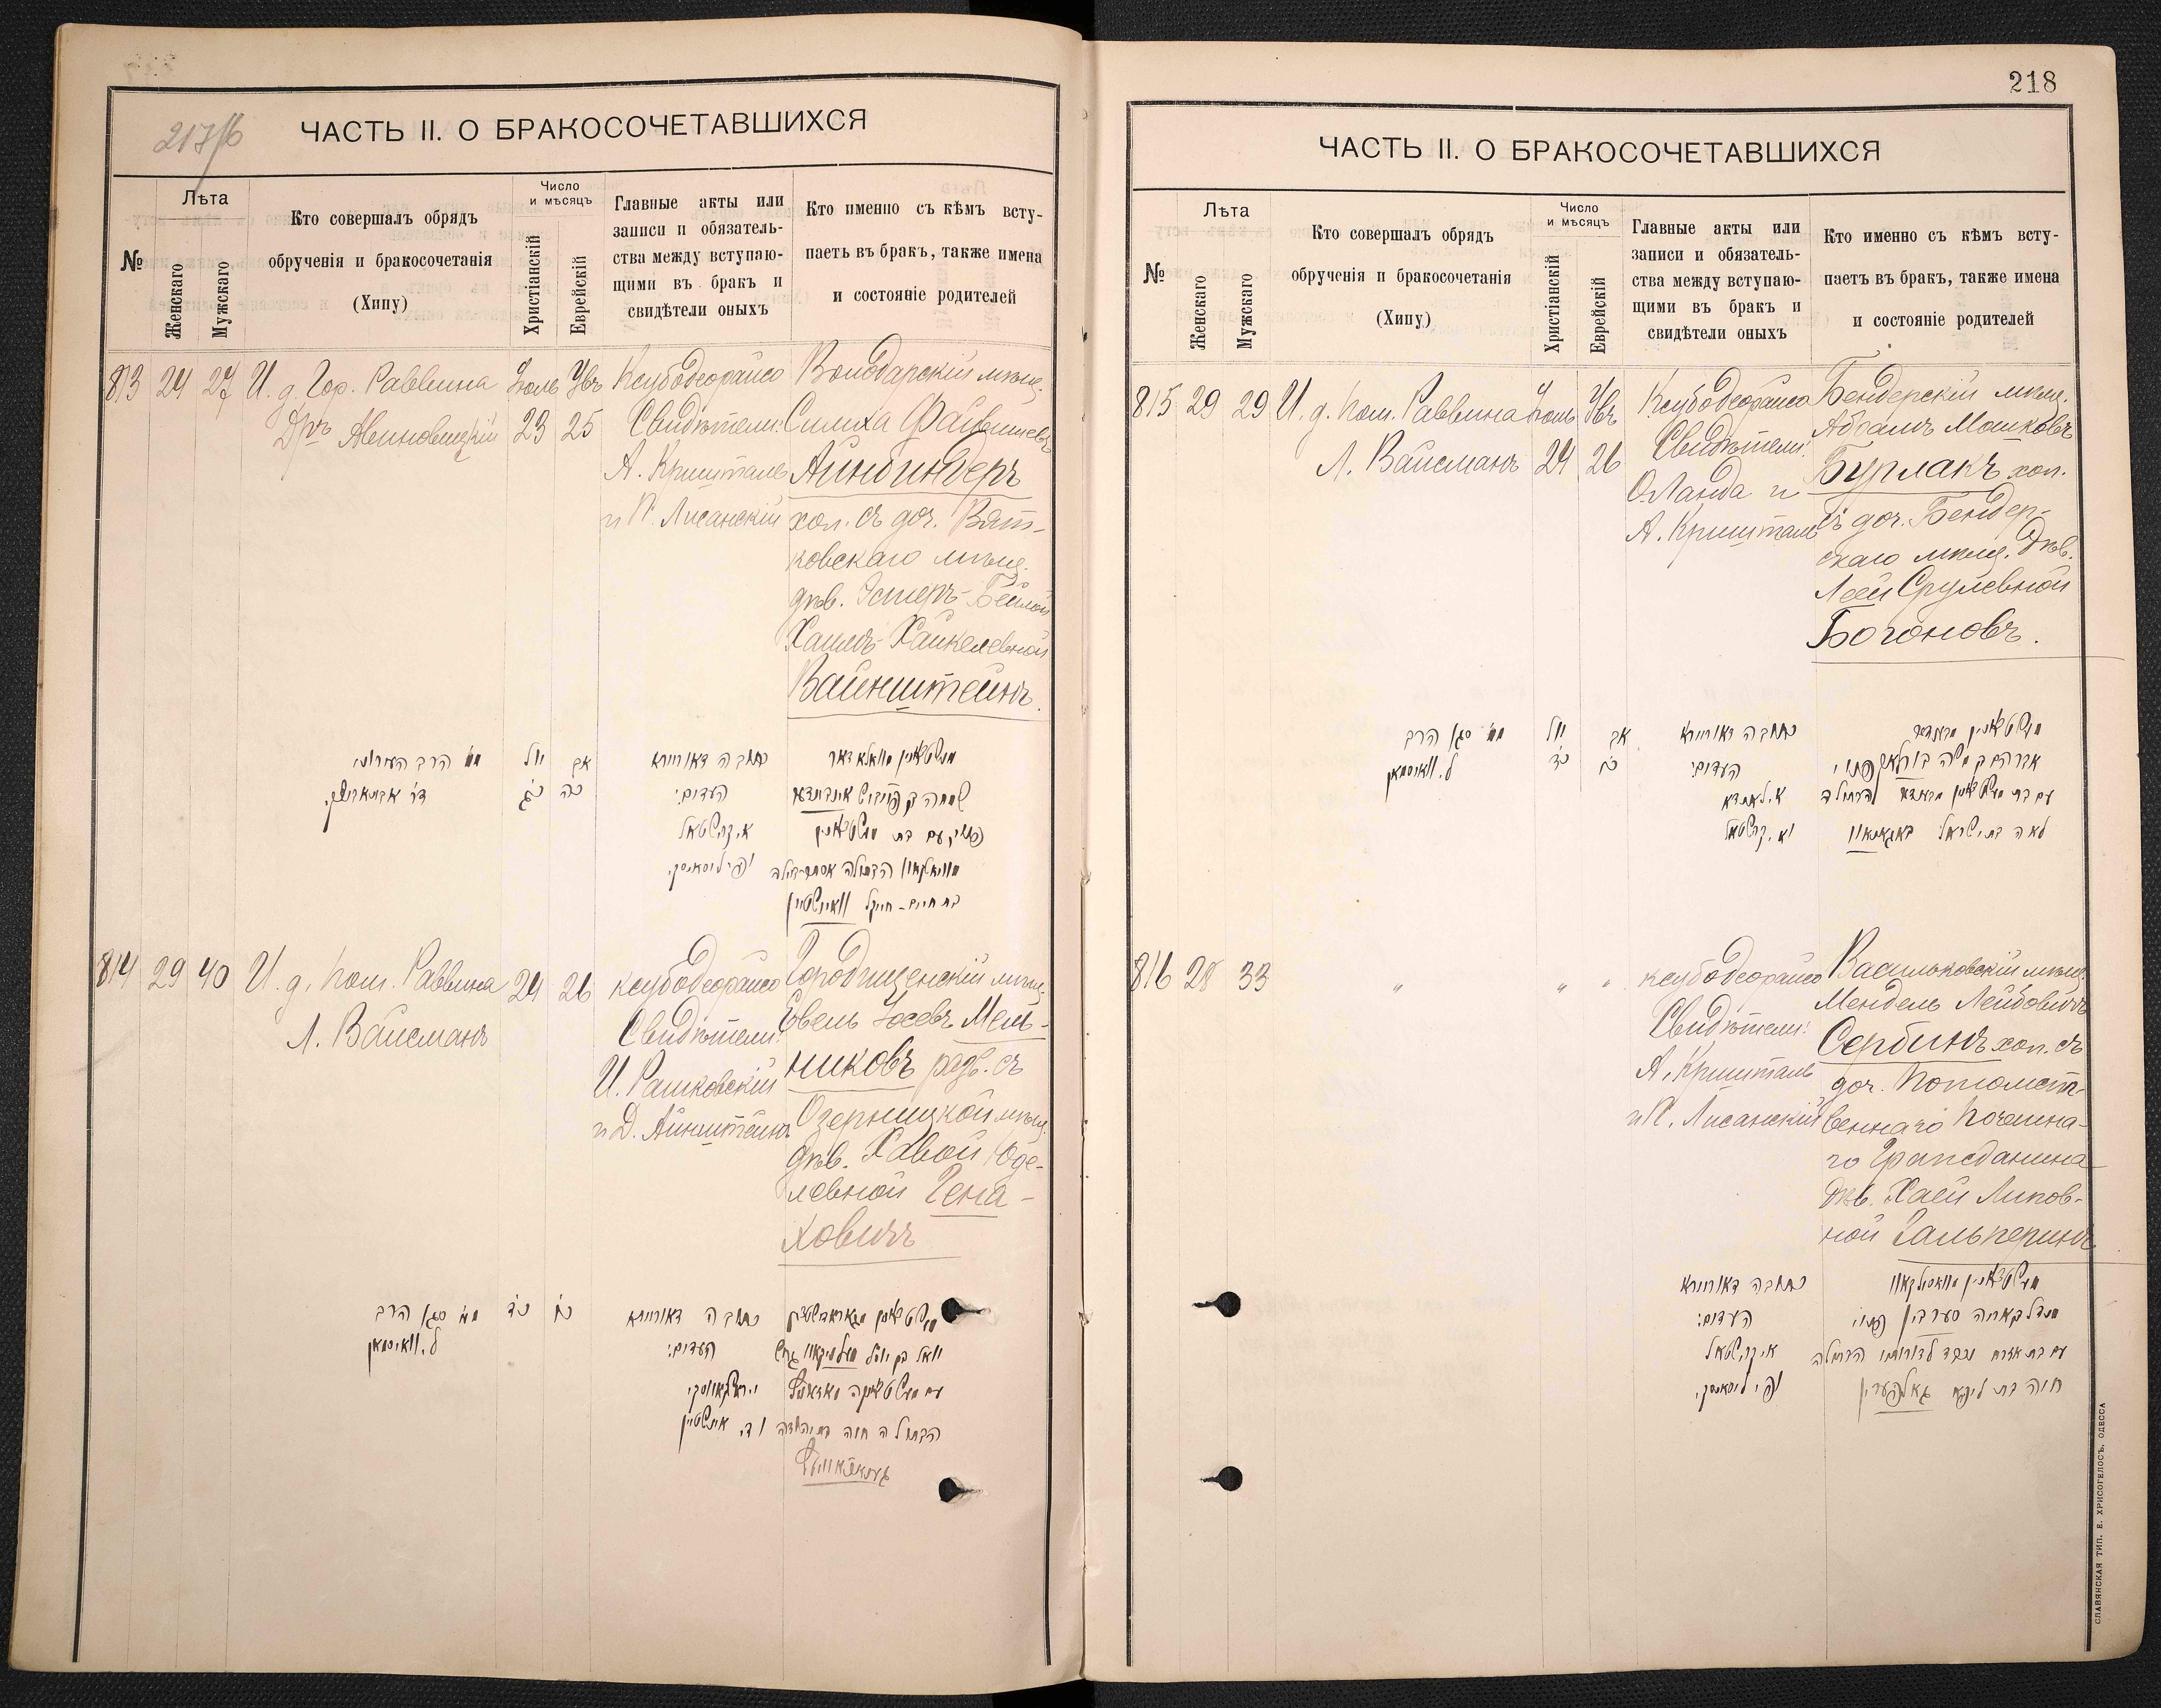 217/б
ЧАСТЬ II. О БРАКОСОЧЕТАВШИХСЯ
№
Лѣта
Женскаго
Мужскаго
Кто совершалъ обрядъ
обрученія и бракосочетанія
(Хипу)
Число
и мѣсяцъ
Христіанскій
Еврейскій
Главные акты или
записи и обязатель-
ства между вступаю-
щими въ бракъ и
свидѣтели оныхъ
Кто именно съ кѣмъ всту-
паетъ въ бракъ, также имена
и состояніе родителей
813 24 27
И. д. Гор. Раввина
Дръ Авиновицкій
Іюль
23
Увъ
25
Ксубодеорайсо
Свидѣтели:
А. Кришталь
и П. Лисанскій
Володарскій мѣщ.
Симха Файвишевъ
Айнбиндеръ
хол. съ доч. Вят-
ковскаго мѣщ.
дѣв. Эстеръ-Бейлой
Хаимъ-Хайкелевной
Вайнштейнъ.
מ״מ הרב העירוני
יול
כ״ג
אב
כה
כתובה דאורייתא
העדים:
א. קרישטאל
814 29 40
И. д. пом. Раввина
Л. Вайсманъ
24 26
ксубодеорайсо
Свидѣтели:
И. Рашковскій
и Д. Айнштейнъ
Городищенскій мѣщ.
Іовель Іосевъ Мель-
никовъ разв. съ
Озерницкой мѣщ.
дѣв. Хавой Юде-
левной Гена-
ховичъ
מ״מ סגן הרב
ל. ווײסמאן
כ״ד
כו
כתובה דאורייתא
העדים:
218
ЧАСТЬ II. О БРАКОСОЧЕТАВШИХСЯ
№
Лѣта
Женскаго
Мужскаго
Кто совершалъ обрядъ
обрученія и бракосочетанія
(Хипу)
Число
и мѣсяцъ
Христіанскій
Еврейскій
Главные акты или
записи и обязатель-
ства между вступаю-
щими въ бракъ и
свидѣтели оныхъ
Кто именно съ кѣмъ всту-
паетъ въ бракъ, также имена
и состояніе родителей
815 29 29
И. д. пом. Раввина
Л. Вайсманъ
Іюль
24
Увъ
26
Ксубодеорайсо
Свидѣтели:
О. Ланда и
А. Кришталь
Бендерскій мѣщ.
Абрамъ Мошковъ
Бурлакъ хол.
съ доч. Бендер-
скаго мѣщ. дѣв.
Леей Срулевной
Богоновъ.
מ״מ סגן הרב
ל. ווײסמאן
יול
כ״ד
אב
כו
כתובה דאורייתא
העדים:
א. לאנדא
וא. קרישטאל
816 28 33
" " "
ксубодеорайсо
Свидѣтели:
А. Кришталь
и П. Лисанскій
Васильковскій мѣщ.
Мендель Лейбовичъ
Сербинъ хол. съ
доч. Потомст-
веннаго Почетна-
го Гражданина
дѣв. Хаей Липов-
ной Гальперинъ
כתובה דאורייתא
העדים:
א. קרישטאל
СЛАВЯНСКАЯ ТИП. Е. ХРИСОГЕЛОСЪ, ОДЕССА